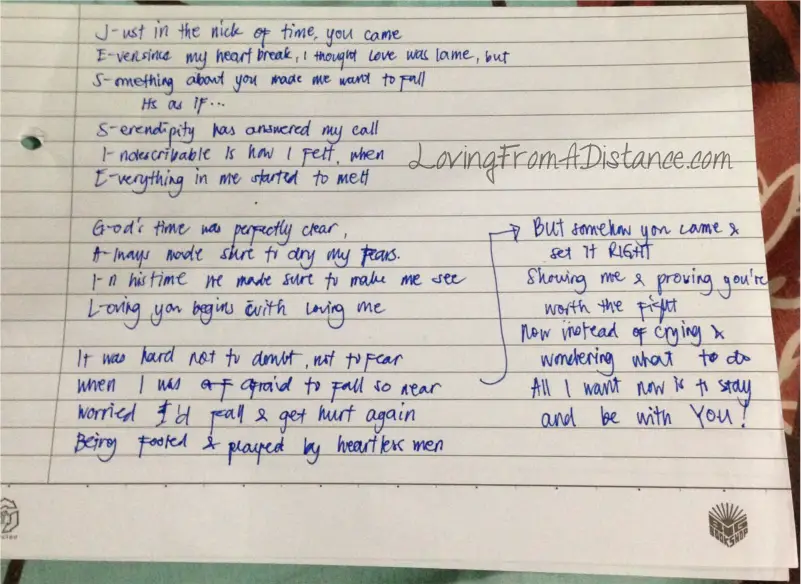 J-ust in the nick of time, you came
E-versince my heart break, I thought love was lame, but
S-omething about you made me want to fall
As as if...
S-erendipity has answered my call
I-ndescribable is how I felt, when
E-verything in me started to melt
LovingFromADistance.com
G-od's time was perfectly clear,
A-lways made sure to dry my tears.
I-n his time he made sure to make me see
L-oving you begins with loving me
It was hard not to doubt, not to fear
when I was afraid to fall so near
Worried I'd fall & get hurt again
Being fooled & played by heartless men
But somehow you came &
set it RIGHT
Showing me & proving you're
worth the fight
Now instead of crying &
wondering what to do
All I want now is to stay
and be with YOU!